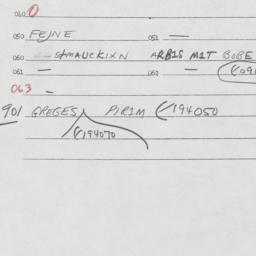 040 0
050 FEJNE 051 —
060 STMAUCKIXN ARBIS MIT BOBE
061 — 062 — (09
063 —
901 GREGES PIRIM (194050
(194070